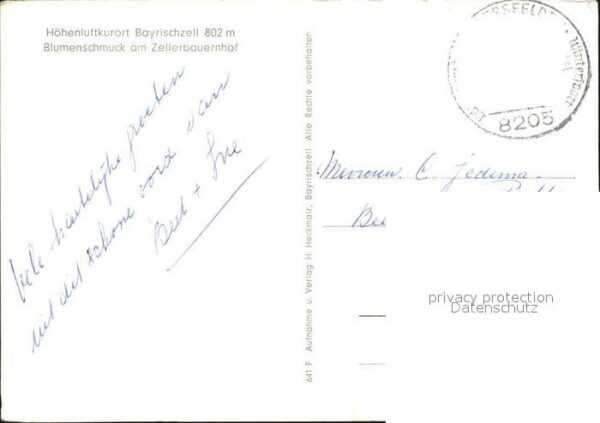 Höhenluftkurort Bayrischzell 802 m
Blumenschmuck am Zellerbauernhof
Vele hartelijke groeten
uit dit schone oord van
Beek + Ine
641 F Aufnahme u. Verlag H. Heckmair, Bayrischzell. Alle Rechte vorbehalten
RSFELD
Wintersport
8205
Mevrouw C. Jedema
Bee
privacy protection
Datenschutz